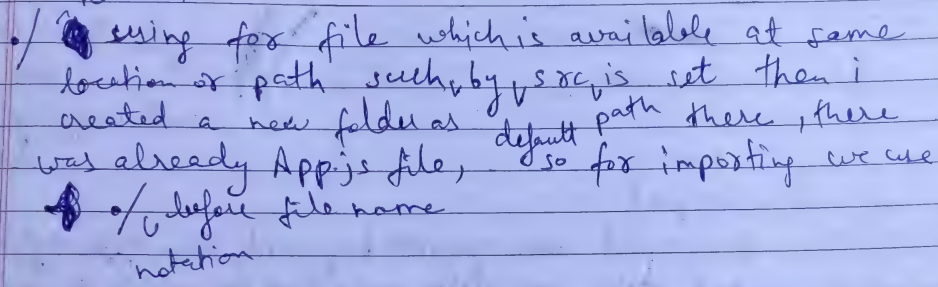 ./ using for file which is available at same
location or path such, by default src path is set then i
created a new folder as there, there
was already App.js file, so for importing we use
./ notation before file name